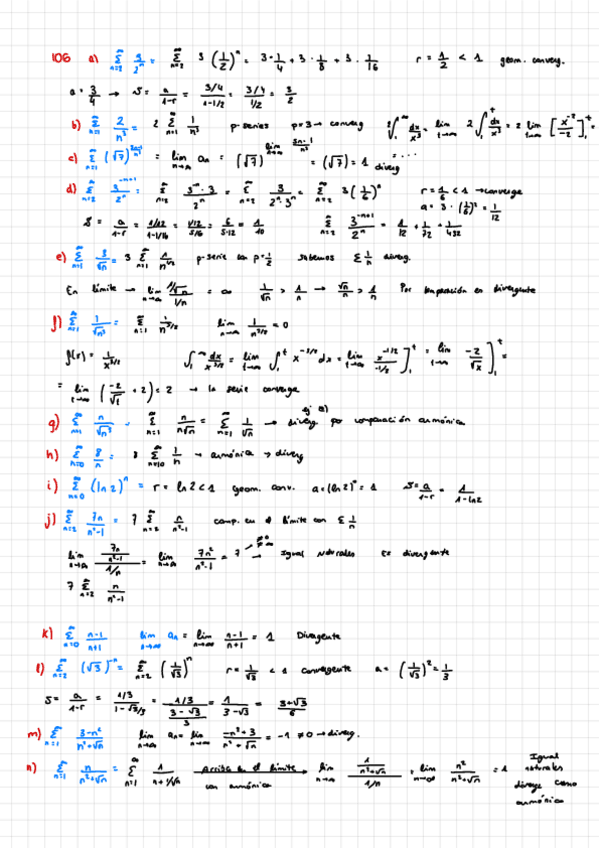 106 a) ∞Σn=2 3/2ⁿ = ∞Σn=2 3 (1/2)ⁿ = 3·1/4 + 3·1/8 + 3·1/16 r = 1/2 < 1 geom. converg.
a = 3/4 → S = a/1-r = 3/4/1-1/2 = 3/4/1/2 = 3/2
b) ∞Σn=1 2/n³ = 2 ∞Σn=1 1/n³ p-series p=3 → converg lim t→∞ 2 ∫₁ᵗ dx/x³ = 2 lim t→∞ [x⁻²/-2]₁ᵗ =
c) lim n→∞ an = (√7) = (√7) = 1 diverg = ...
d) ∞Σn=2 3⁻ⁿ⁺¹/2ⁿ = ∞Σn=2 3⁻ⁿ·3/2ⁿ = ∞Σn=2 3/2ⁿ·3ⁿ = ∞Σn=2 3(1/6)ⁿ r = 1/6 < 1 → converge
a = 3·(1/6)² = 1/12
S = a/1-r = 1/12/1-1/6 = 1/12/5/6 = 6/5·12 = 1/10 ∞Σn=2 3⁻ⁿ⁺¹/2ⁿ = 1/12 + 1/72 + 1/432
e) ∞Σn=1 3/√n = 3 ∞Σn=1 1/n^1/2 p-serie con p=1/2 sabemos Σ 1/n diverg.
En límite → lim n→∞ 1/√n/1/n = ∞ 1/√n > 1/n → Por comparación es divergente
f) ∞Σn=1 1/√n³ = ∞Σn=1 1/n^3/2 lim n→∞ 1/n^3/2 = 0
f(x) = 1/x^3/2 ∫₁^∞ dx/x^3/2 = lim t→∞ ∫₁ᵗ x^-3/2 dx = lim t→∞ x^-1/2/-1/2 ]₁ᵗ = lim t→∞ -2/√x ]₁ᵗ =
= lim t→∞ (-2/√t + 2) = 2 → la serie converge
g) ∞Σn=1 n/√n³ = ∞Σn=1 n/n√n = ∞Σn=1 1/√n → diverg por comparación armónica
h) ∞Σ 8/n = 8 ∞Σ 1/n → armónica → diverg
i) ∞Σn=0 (ln2)ⁿ = r = ln2 < 1 geom. conv. a = (ln2)⁰ = 1 S = a/1-r = 1/1-ln2
j) ∞Σn=2 7n/n²-1 = 7 ∞Σn=2 n/n²-1 comp. en el límite con Σ 1/n
lim n→∞ 7n/n²-1/1/n = lim n→∞ 7n²/n²-1 = 7 ≠0 ≠∞ → Igual naturales Es divergente
7 ∞Σn=2 n/n²-1
k) ∞Σn=0 n-1/n+1 lim n→∞ an = lim n→∞ n-1/n+1 = 1 Divergente
l) ∞Σn=2 (√3)⁻ⁿ = ∞Σn=2 (1/√3)ⁿ r = 1/√3 < 1 convergente a = (1/√3)² = 1/3
S = a/1-r = 1/3/1-√3/3 = 1/3/3-√3/3 = 1/3-√3 = 3+√3/6
m) ∞Σn=1 3-n²/n²+√n lim n→∞ an = lim n→∞ -n²+3/n²+√n = -1 ≠ 0 → diverg.
n) ∞Σn=1 n/n²+√n = ∞Σn=1 el límite con armónica lim n→∞ 1/n = lim n→∞ n²/n²+√n = 1 Igual naturales diverge como armónica